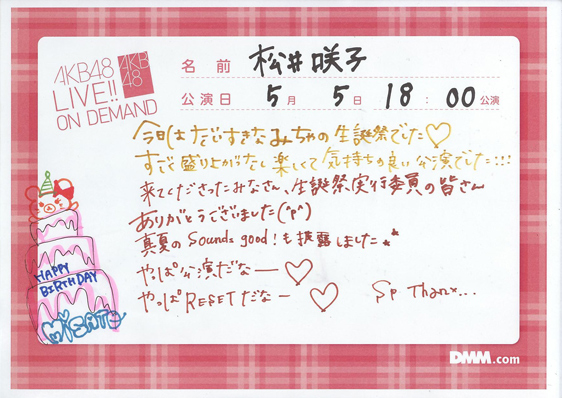 AKB48
LIVE!!
ON DEMAND
AKB
48
名前 松井咲子
公演日 5月 5日 18:00公演
今日はだいすきなみちゃの生誕祭でした♡
すごく盛り上がったし楽しくて気持ちの良い公演でした!!!
来てくださったみなさん、生誕祭実行委員の皆さん
ありがとうございました(^p^)
真夏のSounds good!も披露しました
やっぱ公演だなー♡
やっぱRESETだなー♡
Sp Thanx...
HAPPY
BIRTHDAY
DMM.com